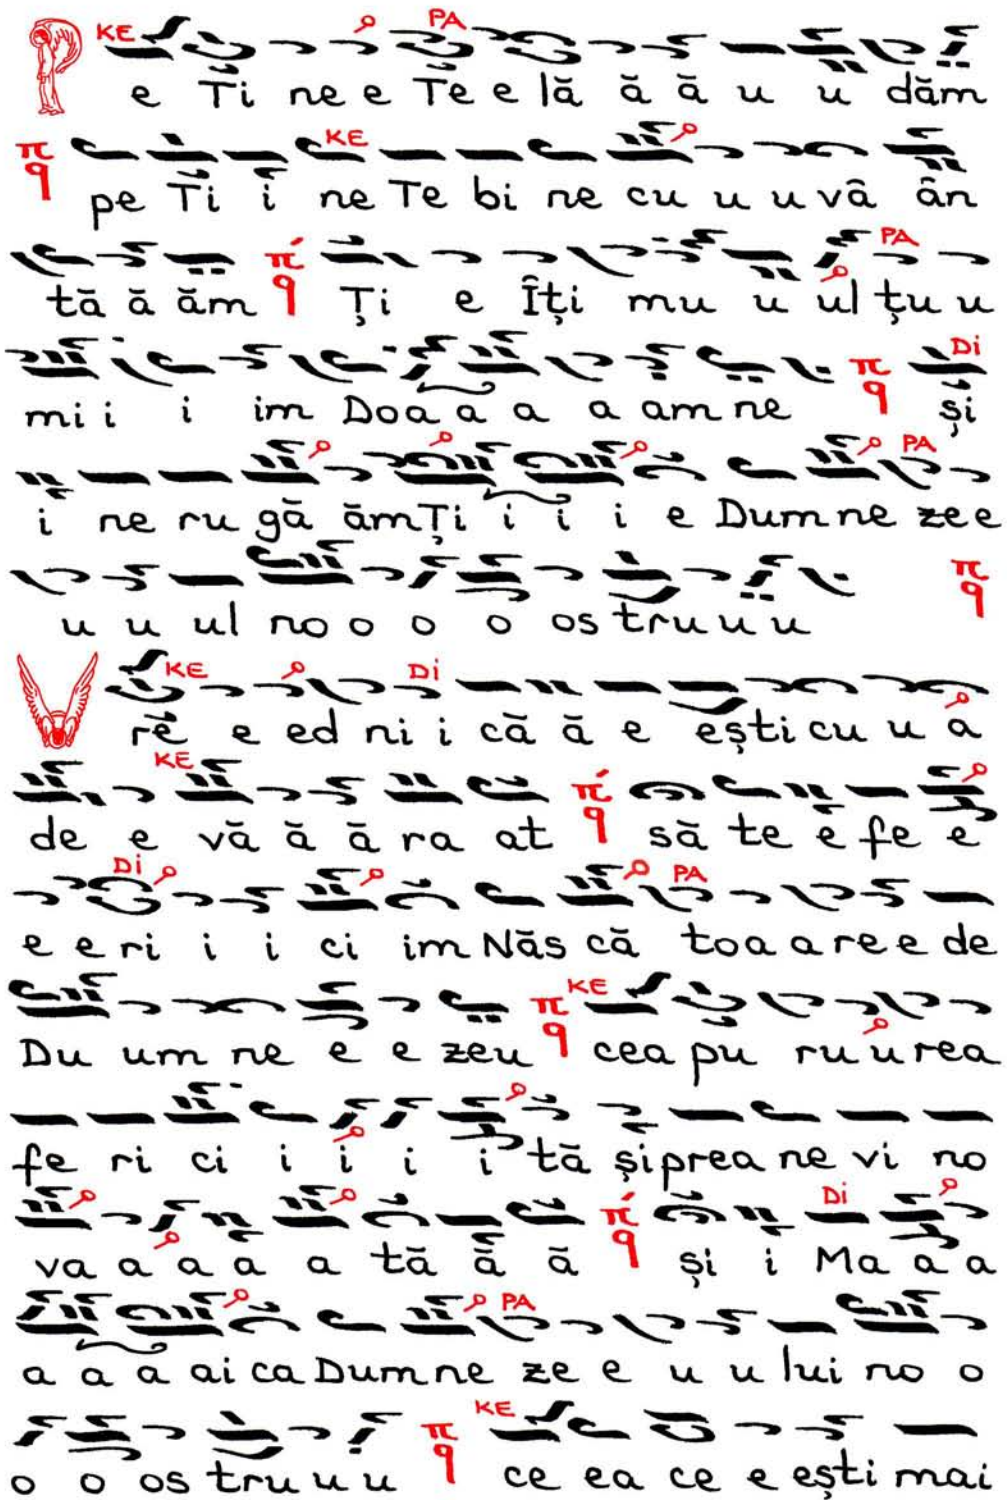 KE PA
Pe Ti ne e Te e lă ă ă u u dăm
π q KE
pe Ti i ne Te bi ne cu u u vâ ân
π q PA
tă ă ăm Ţi e Îţi mu u ul ţu u
π q Di
mi i i im Doa a a a am ne şi
PA
i ne ru gă ăm Ţi i i i e Dum ne ze e
π q
u u ul no o o o os tru u u
KE Di
Vre e ed ni i că ă e eşti cu u a
KE π q
de e vă ă ă ra at să te e fe e
Di PA
e e ri i i ci im Năs că toa a re e de
π q KE
Du um ne e e zeu cea pu ru u rea
fe ri ci i i i i tă şi prea ne vi no
π q Di
va a a a a tă ă ă şi i Ma a a
PA
a a a ai ca Dum ne ze e u u lui no o
π q KE
o o os tru u u ce ea ce e eşti mai